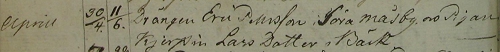 Aprill 30/4 11/6. Drängen Eric Pehrsson Söra måsby och Pigan
Kjerstin Lars Dotter, Bäck